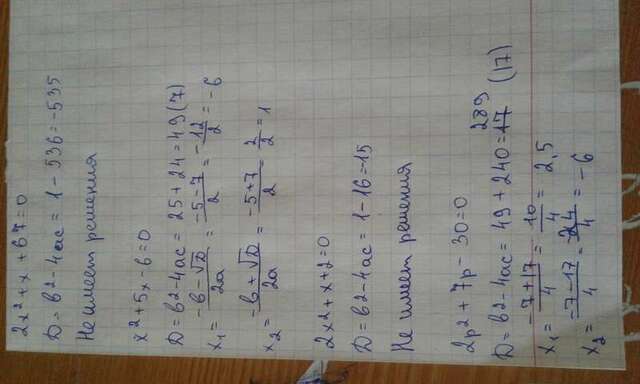 2x² + x + 67 = 0
D = b2 - 4ac = 1 - 536 = -535
Не имеет решения
x² + 5x - 6 = 0
D = b2 - 4ac = 25 + 24 = 49 (7)
x₁ = (-b - √D)/2a = (-5 - 7)/2 = -12/2 = -6
x₂ = (-b + √D)/2a = (-5 + 7)/2 = 2/2 = 1
2x² + x + 2 = 0
D = b2 - 4ac = 1 - 16 = -15
Не имеет решения
2p² + 7p - 30 = 0
D = b2 - 4ac = 49 + 240 = 289 (17)
x₁ = (-7 + 17)/4 = 10/4 = 2,5
x₂ = (-7 - 17)/4 = -24/4 = -6